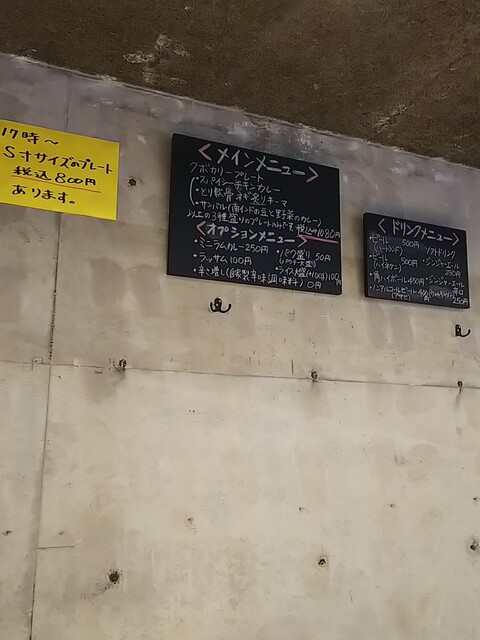 17時〜
Sサイズのプレート
税込800円
あります。
<メインメニュー>
クボカリープレート
・スパイシーチキンカレー
・とり軟骨ネギ炙りキーマ
・サンバル(南インドの豆と野菜のカレー)
以上の3種盛りのプレートのみです 税込み1080円
<オプションメニュー>
・ミニラムカレー250円 ・パク盛り 50円
・ラッサム100円 (パクチー大盛り)
・辛さ増し(自家製辛味調味料)0円 ・ライス大盛(+100g)100円
<ドリンクメニュー>
・ビール 500円 ソフトドリンク
(ハートランド)
・ビール 500円 ・ジンジャーエール
(ハイネケン) 250円
・角ハイボール450円 ・ジンジャーエール
・ノンアルコールビール 辛口
(アサヒ) 250円